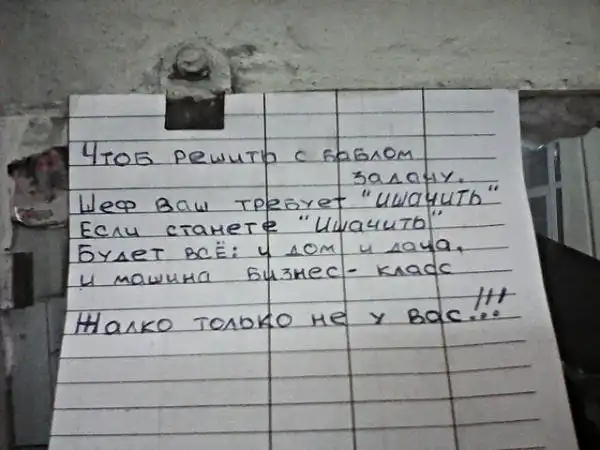 Чтоб решить с баблом
задачу.
Шеф ваш требует "ишачить"
Если станете "ишачить"
Будет всё: и дом и дача,
и машина бизнес - класс
Жалко только не у вас...!!!